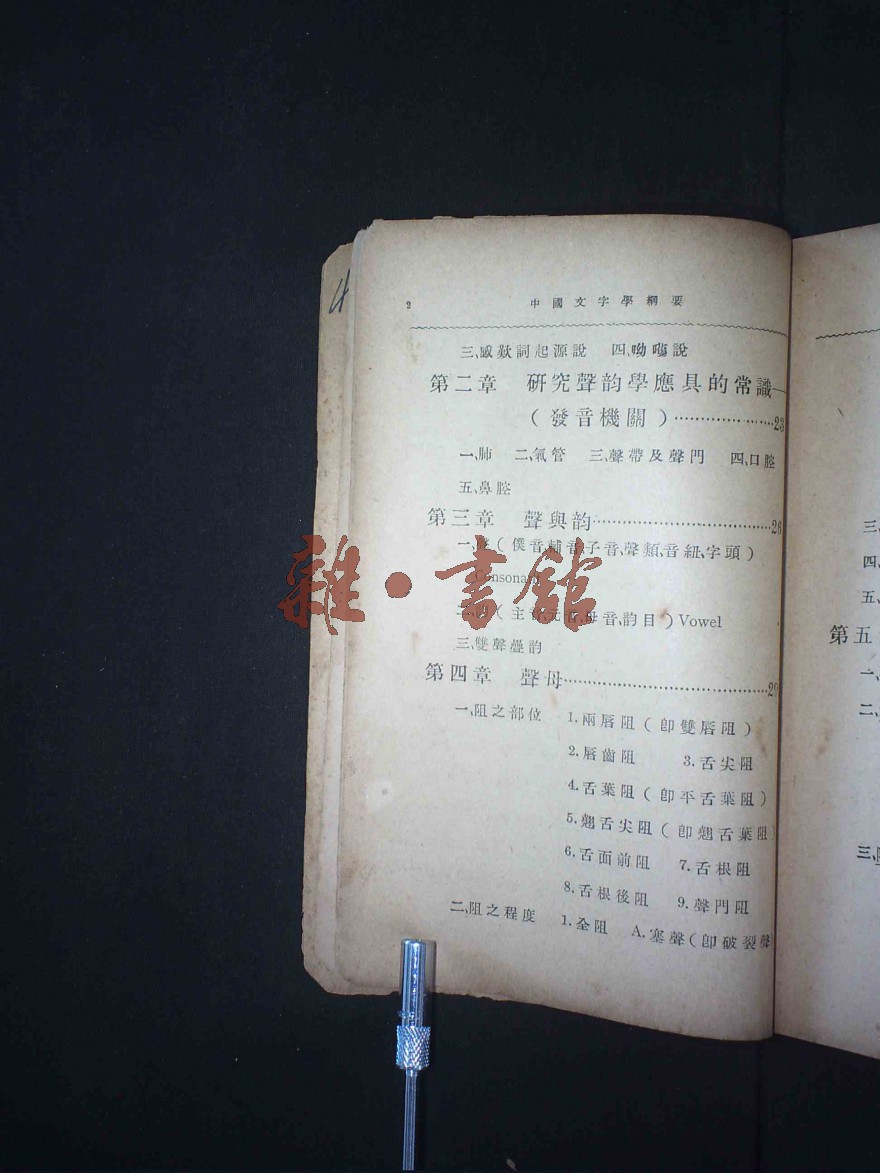 4
2 中國文字學綱要
三、感歎詞起源說 四、呦嘎說
第二章 研究聲韵學應具的常識—
（發音機關）……………………23
一、肺 二、氣管 三、聲帶及聲門 四、口腔
五、鼻腔
第三章 聲與韵……………………26
一、聲（僕音、輔音、子音、聲類、音紐、字頭）
Consonant
二、韵（主音、元音、母音、韵目）Vowel
三、雙聲疊韵
第四章 聲母……………………29
一、阻之部位 1.兩唇阻（卽雙唇阻）
2.唇齒阻 3.舌尖阻
4.舌葉阻（卽平舌葉阻）
5.翹舌尖阻（卽翹舌葉阻）
6.舌面前阻 7.舌根阻
8.舌根後阻 9.聲門阻
二、阻之程度 1.全阻 A.塞聲（卽破裂聲
雜·書館
三、
四、
五、
第五
一、
二、
三、